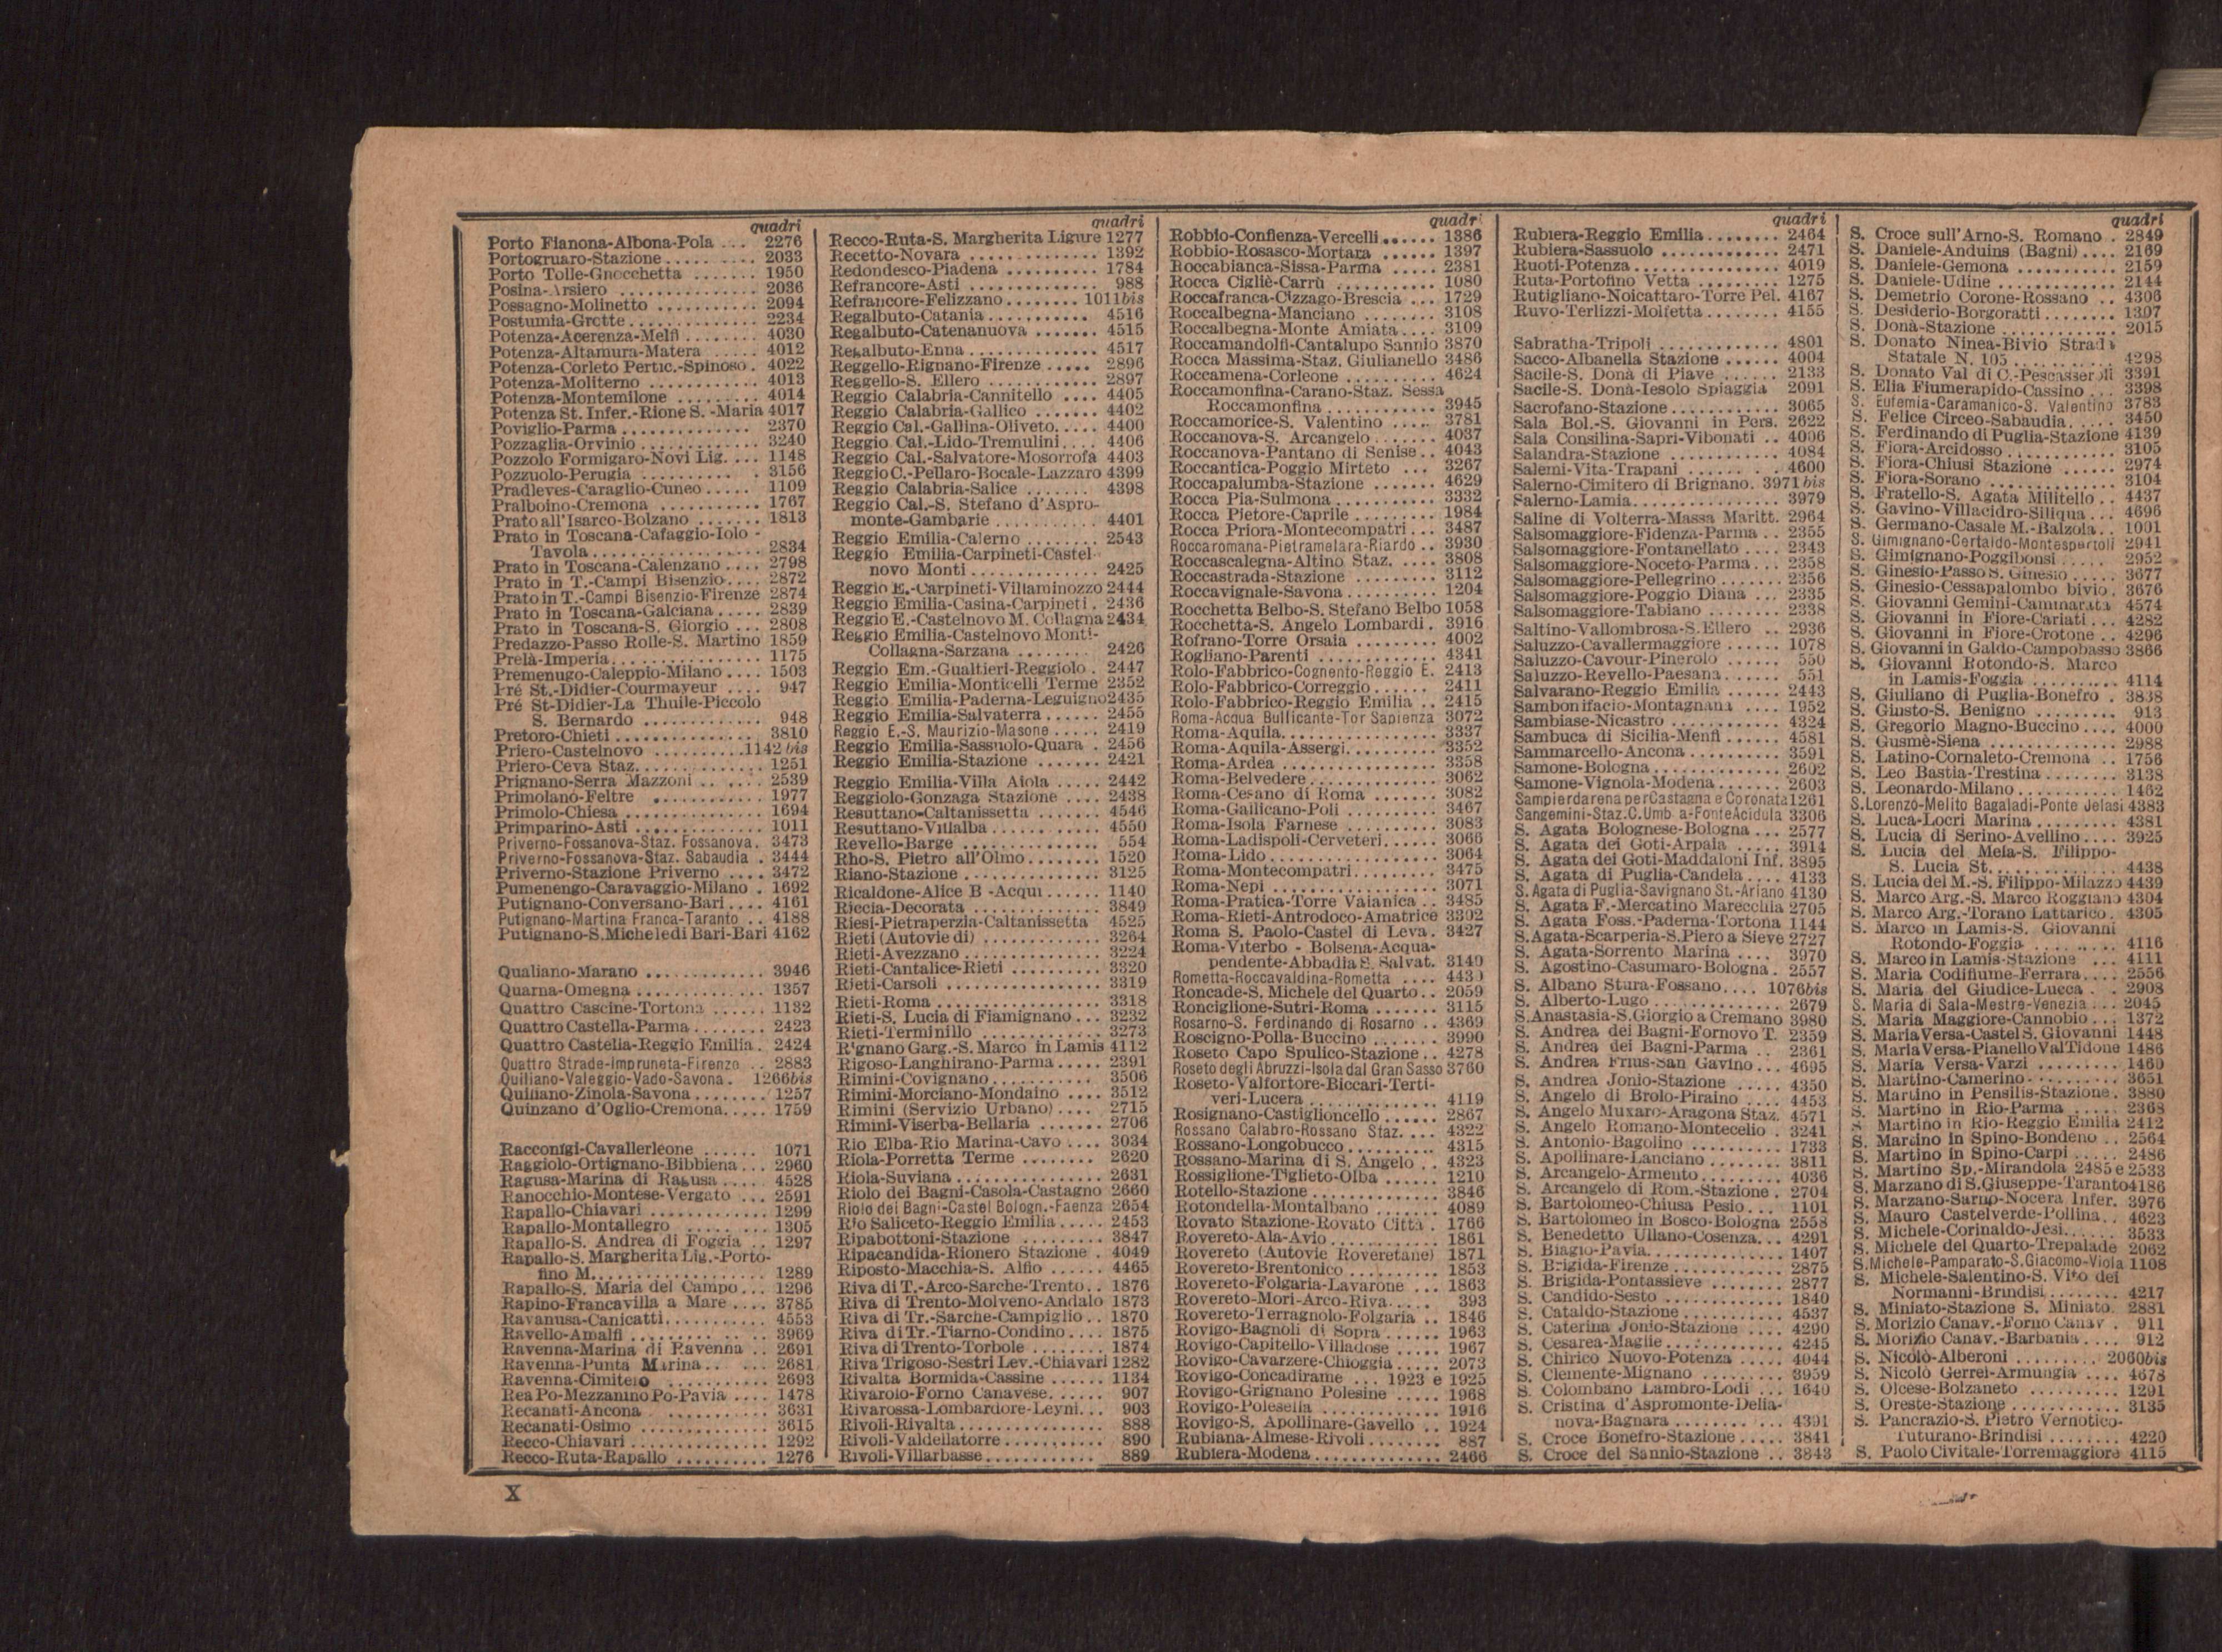 quadri
Porto Fianona-Albona-Pola ... 2276
Portogruaro-Stazione ......... 2033
Porto Tolle-Gnocchetta ....... 1950
Posina-Arsiero .............. 2036
Possagno-Molinetto ........... 2094
Postumia-Grotte .............. 2234
Potenza-Acerenza-Melfi ........ 4030
Potenza-Altamura-Matera ..... 4012
Potenza-Corleto Pertic.-Spinoso . 4022
Potenza-Moliterno ........... 4013
Potenza-Montemilone ......... 4014
Potenza St. Infer.-Rione S.-Maria 4017
Poviglio-Parma ............. 2370
Pozzaglia-Orvinio ............ 3240
Pozzolo Formigaro-Novi Lig. ... 1148
Pozzuolo-Perugia .......... . 3156
Pradleves-Caraglio-Cuneo ..... 1109
Pralboino-Cremona ........... 1767
Prato all'Isarco-Bolzano ....... 1813
Prato in Toscana-Cafaggio-Iolo-
Tavola ................. 2834
Prato in Toscana-Calenzano .... 2798
Prato in T.-Campi Bisenzio .... 2872
Prato in T.-Campi Bisenzio-Firenze 2874
Prato in Toscana-Galciana ..... 2839
Prato in Toscana-S. Giorgio ... 2808
Predazzo-Passo Rolle-S. Martino 1859
Prelà-Imperia ............... 1175
Premenugo-Caleppio-Milano .... 1503
Pré St.-Didier-Courmayeur .... 947
Pré St-Didier-La Thuile-Piccolo
S. Bernardo ............ 948
Pretoro-Chieti ............... 3810
Priero-Castelnovo .......... 1142 bis
Priero-Ceva Staz. ............. 1251
Prignano-Serra Mazzoni ....... 2539
Primolano-Feltre ............ 1977
Primolo-Chiesa .............. 1694
Primparino-Asti ............. 1011
Priverno-Fossanova-Staz. Fossanova . 3473
Priverno-Fossanova-Staz. Sabaudia . 3444
Priverno-Stazione Priverno .... 3472
Pumenengo-Caravaggio-Milano . 1692
Putignano-Conversano-Bari .... 4161
Putignano-Martina Franca-Taranto .. 4188
Putignano-S. Michele di Bari-Bari 4162
Qualiano-Marano ............ 3946
Quarna-Omegna ............. 1357
Quattro Cascine-Tortona ...... 1132
Quattro Castella-Parma ........ 2423
Quattro Castella-Reggio Emilia . 2424
Quattro Strade-Impruneta-Firenze .. 2883
Quiliano-Valeggio-Vado-Savona . 1266bis
Quiliano-Zinola-Savona ........ 1257
Quinzano d'Oglio-Cremona ..... 1759
Racconigi-Cavallerleone ...... 1071
Raggiolo-Ortignano-Bibbiena ... 2960
Ragusa-Marina di Ragusa ..... 4528
Ranocchio-Montese-Vergato ... 2591
Rapallo-Chiavari ............ 1299
Rapallo-Montallegro ......... 1305
Rapallo-S. Andrea di Foggia .. 1297
Rapallo-S. Margherita Lig.-Porto-
fino M. ................. 1289
Rapallo-S. Maria del Campo ... 1296
Rapino-Francavilla a Mare .... 3785
Ravanusa-Canicattì ........... 4553
Ravello-Amalfi .............. 3969
Ravenna-Marina di Ravenna .. 2691
Ravenna-Punta Marina ....... 2681
Ravenna-Cimitero ........... 2693
Rea Po-Mezzanino Po-Pavia .... 1478
Recanati-Ancona ........... 3631
Recanati-Osimo ............. 3615
Recco-Chiavari .............. 1292
Recco-Ruta-Rapallo .......... 1276
quadri
Recco-Ruta-S. Margherita Ligure 1277
Recetto-Novara ............. 1392
Redondesco-Piadena .......... 1784
Refrancore-Asti ............. 988
Refrancore-Felizzano ........ 1011bis
Regalbuto-Catania ........... 4516
Regalbuto-Catenanuova ....... 4515
Regalbuto-Enna ............. 4517
Reggello-Rignano-Firenze ..... 2896
Reggello-S. Ellero ........... 2897
Reggio Calabria-Cannitello .... 4405
Reggio Calabria-Gallico ....... 4402
Reggio Cal.-Gallina-Oliveto ..... 4400
Reggio Cal.-Lido-Tremulini .... 4406
Reggio Cal.-Salvatore-Mosorrofa 4403
Reggio C.-Pellaro-Bocale-Lazzaro 4399
Reggio Calabria-Salice ....... 4398
Reggio Cal.-S. Stefano d'Aspro-
monte-Gambarie .......... 4401
Reggio Emilia-Calerno ........ 2543
Reggio Emilia-Carpineti-Castel-
novo Monti ............. 2425
Reggio E.-Carpineti-Villaminozzo 2444
Reggio Emilia-Casina-Carpineti . 2436
Reggio E.-Castelnovo M. Collagna 2434
Reggio Emilia-Castelnovo Monti-
Collagna-Sarzana ........ 2426
Reggio Em.-Gualtieri-Reggiolo . 2447
Reggio Emilia-Monticelli Terme 2352
Reggio Emilia-Paderna-Leguigno 2435
Reggio Emilia-Salvaterra ...... 2455
Reggio E.-S. Maurizio-Masone ..... 2419
Reggio Emilia-Sassuolo-Quara . 2456
Reggio Emilia-Stazione ....... 2421
Reggio Emilia-Villa Aiola ..... 2442
Reggiolo-Gonzaga Stazione .... 2438
Resuttano-Caltanissetta ....... 4546
Resuttano-Villalba ........... 4550
Revello-Barge .............. 554
Rho-S. Pietro all'Olmo ........ 1520
Riano-Stazione .............. 3125
Ricaldone-Alice B.-Acqui ...... 1140
Riccia-Decorata ............. 3849
Riesi-Pietraperzia-Caltanissetta 4525
Rieti (Autovie di) ............ 3264
Rieti-Avezzano .............. 3224
Rieti-Cantalice-Rieti .......... 3320
Rieti-Carsoli ................ 3319
Rieti-Roma ................. 3318
Rieti-S. Lucia di Fiamignano ... 3232
Rieti-Terminillo ............. 3273
Rignano Garg.-S. Marco in Lamis 4112
Rigoso-Langhirano-Parma ..... 2391
Rimini-Covignano ........... 3506
Rimini-Morciano-Mondaino .... 3512
Rimini (Servizio Urbano) .... 2715
Rimini-Viserba-Bellaria ....... 2706
Rio Elba-Rio Marina-Cavo .... 3034
Riola-Porretta Terme ........ 2620
Riola-Suviana ............... 2631
Riolo dei Bagni-Casola-Castagno 2660
Riolo dei Bagni-Castel Bologn.-Faenza 2654
Rio Saliceto-Reggio Emilia ..... 2453
Ripabottoni-Stazione ......... 3847
Ripacandida-Rionero Stazione . 4049
Riposto-Macchia-S. Alfio ...... 4465
Riva di T.-Arco-Sarche-Trento .. 1876
Riva di Trento-Molveno-Andalo 1873
Riva di Tr.-Sarche-Campiglio .. 1870
Riva di Tr.-Tiarno-Condino .... 1875
Riva di Trento-Torbole ........ 1874
Riva Trigoso-Sestri Lev.-Chiavari 1282
Rivalta Bormida-Cassine ...... 1134
Rivarolo-Forno Canavese ...... 907
Rivarossa-Lombardore-Leynì ... 903
Rivoli-Rivalta ............... 888
Rivoli-Valdellatorre ........... 890
Rivoli-Villarbasse ............ 889
quadri
Robbio-Confienza-Vercelli ...... 1386
Robbio-Rosasco-Mortara ...... 1397
Roccabianca-Sissa-Parma ..... 2381
Rocca Cigliè-Carrù ........... 1080
Roccafranca-Cizzago-Brescia ... 1729
Roccalbegna-Manciano ........ 3108
Roccalbegna-Monte Amiata .... 3109
Roccamandolfi-Cantalupo Sannio 3870
Rocca Massima-Staz. Giulianello 3486
Roccamena-Corleone .......... 4624
Roccamonfina-Carano-Staz. Sessa
Roccamonfina ............ 3945
Roccamorice-S. Valentino ..... 3781
Roccanova-S. Arcangelo ....... 4037
Roccanova-Pantano di Senise .. 4043
Roccantica-Poggio Mirteto ... 3267
Roccapalumba-Stazione ....... 4629
Rocca Pia-Sulmona ........... 3332
Rocca Pietore-Caprile ......... 1984
Rocca Priora-Montecompatri ... 3487
Roccaromana-Pietramelara-Riardo .. 3930
Roccascalegna-Altino Staz. .... 3808
Roccastrada-Stazione ......... 3112
Roccavignale-Savona .......... 1204
Rocchetta Belbo-S. Stefano Belbo 1058
Rocchetta-S. Angelo Lombardi . 3916
Rofrano-Torre Orsaia ......... 4002
Rogliano-Parenti ............ 4341
Rolo-Fabbrico-Cognento-Reggio E. 2413
Rolo-Fabbrico-Correggio ...... 2411
Rolo-Fabbrico-Reggio Emilia .. 2415
Roma-Acqua Bulficante-Tor Sapienza 3072
Roma-Aquila ................ 3337
Roma-Aquila-Assergi .......... 3352
Roma-Ardea ................ 3358
Roma-Belvedere .............. 3062
Roma-Cesano di Roma ....... 3082
Roma-Gallicano-Poli .......... 3467
Roma-Isola Farnese .......... 3083
Roma-Ladispoli-Cerveteri ...... 3066
Roma-Lido .................. 3064
Roma-Montecompatri ......... 3475
Roma-Nepi ................. 3071
Roma-Pratica-Torre Vaianica .. 3485
Roma-Rieti-Antrodoco-Amatrice 3302
Roma S. Paolo-Castel di Leva . 3427
Roma-Viterbo - Bolsena-Acqua-
pendente-Abbadia S. Salvat. 3140
Rometta-Roccavaldina-Rometta .... 
Roncade-S. Michele del Quarto .. 2059
Ronciglione-Sutri-Roma ....... 3115
Rosarno-S. Ferdinando di Rosarno .. 4369
Roscigno-Polla-Buccino ........ 3990
Roseto Capo Spulico-Stazione .. 4278
Roseto degli Abruzzi-Isola dal Gran Sasso 3760
Roseto-Valfortore-Biccari-Terti-
veri-Lucera .............. 4119
Rosignano-Castiglioncello ...... 2867
Rossano Calabro-Rossano Staz. ... 4322
Rossano-Longobucco .......... 4315
Rossano-Marina di S. Angelo .. 4323
Rossiglione-Tiglieto-Olba ...... 1210
Rotello-Stazione ............. 3846
Rotondella-Montalbano ....... 4089
Rovato Stazione-Rovato Città . 1766
Rovereto-Ala-Avio ............ 1861
Rovereto (Autovie Roveretane) 1871
Rovereto-Brentonico .......... 1853
Rovereto-Folgaria-Lavarone ... 1863
Rovereto-Mori-Arco-Riva ..... 393
Rovereto-Terragnolo-Folgaria .. 1846
Rovigo-Bagnoli di Sopra ...... 1963
Rovigo-Capitello-Villadose ..... 1967
Rovigo-Cavarzere-Chioggia ..... 2073
Rovigo-Concadirame ... 1923 e 1925
Rovigo-Grignano Polesine ..... 1968
Rovigo-Polesella ............. 1916
Rovigo-S. Apollinare-Gavello .. 1924
Rubiana-Almese-Rivoli ........ 887
Rubiera-Modena ............. 2466
quadri
Rubiera-Reggio Emilia ........ 2464
Rubiera-Sassuolo ............ 2471
Ruoti-Potenza ............... 4019
Ruta-Portofino Vetta ......... 1275
Rutigliano-Noicattaro-Torre Pel. 4167
Ruvo-Terlizzi-Molfetta ........ 4155
Sabratha-Tripoli ............. 4801
Sacco-Albanella Stazione ...... 4004
Sacile-S. Donà di Piave ...... 2133
Sacile-S. Donà-Iesolo Spiaggia 2091
Sacrofano-Stazione ............ 3065
Sala Bol.-S. Giovanni in Pers. 2622
Sala Consilina-Sapri-Vibonati .. 4006
Salandra-Stazione ........... 4084
Salemi-Vita-Trapani ......... 4600
Salerno-Cimitero di Brignano. 3971bis
Salerno-Lamia ............... 3979
Saline di Volterra-Massa Maritt. 2964
Salsomaggiore-Fidenza-Parma .. 2355
Salsomaggiore-Fontanellato .... 2343
Salsomaggiore-Noceto-Parma ... 2358
Salsomaggiore-Pellegrino ...... 2356
Salsomaggiore-Poggio Diana ... 2335
Salsomaggiore-Tabiano ....... 2338
Saltino-Vallombrosa-S. Ellero .. 2936
Saluzzo-Cavallermaggiore ...... 1078
Saluzzo-Cavour-Pinerolo ..... 550
Saluzzo-Revello-Paesana ...... 551
Salvarano-Reggio Emilia ...... 2443
Sambonifacio-Montagnana .... 1952
Sambiase-Nicastro ........... 4324
Sambuca di Sicilia-Menfi ...... 4581
Sammarcello-Ancona ......... 3591
Samone-Bologna ............. 2602
Samone-Vignola-Modena ...... 2603
Sampierdarena per Castagna e Coronata 1261
Sangemini-Staz. C. Umb a-Fonte Acidula 3306
S. Agata Bolognese-Bologna ... 2577
S. Agata dei Goti-Arpaia ..... 3914
S. Agata dei Goti-Maddaloni Inf. 3895
S. Agata di Puglia-Candela .... 4133
S. Agata di Puglia-Savignano St.-Ariano 4130
S. Agata F.-Mercatino Marecchia 2705
S. Agata Foss.-Paderna-Tortona 1144
S. Agata-Scarperia-S. Piero a Sieve 2727
S. Agata-Sorrento Marina .... 3970
S. Agostino-Casumaro-Bologna . 2557
S. Albano Stura-Fossano .... 1076bis
S. Alberto-Lugo ............. 2679
S. Anastasia-S. Giorgio a Cremano 3980
S. Andrea dei Bagni-Fornovo T. 2359
S. Andrea dei Bagni-Parma .. 2361
S. Andrea Frius-San Gavino ... 4695
S. Andrea Jonio-Stazione ..... 4350
S. Angelo di Brolo-Piraino .... 4453
S. Angelo Muxaro-Aragona Staz. 4571
S. Angelo Romano-Montecelio . 3241
S. Antonio-Bagolino .......... 1733
S. Apollinare-Lanciano ........ 3811
S. Arcangelo-Armento ......... 4036
S. Arcangelo di Rom.-Stazione . 2704
S. Bartolomeo-Chiusa Pesio ... 1101
S. Bartolomeo in Bosco-Bologna 2558
S. Benedetto Ullano-Cosenza ... 4291
S. Biagio-Pavia .............. 1407
S. Brigida-Firenze ............ 2875
S. Brigida-Pontassieve ........ 2877
S. Candido-Sesto ............ 1840
S. Cataldo-Stazione ........... 4537
S. Caterina Jonio-Stazione .... 4290
S. Cesarea-Maglie ............ 4245
S. Chirico Nuovo-Potenza ..... 4044
S. Clemente-Mignano ......... 3959
S. Colombano Lambro-Lodi ... 1640
S. Cristina d'Aspromonte-Delia-
nova-Bagnara ........... 4391
S. Croce Bonefro-Stazione ..... 3841
S. Croce del Sannio-Stazione .. 3843
quadri
S. Croce sull'Arno-S. Romano . 2849
S. Daniele-Anduins (Bagni) .... 2169
S. Daniele-Gemona .......... 2159
S. Daniele-Udine ............ 2144
S. Demetrio Corone-Rossano .. 4306
S. Desiderio-Borgoratti ........ 1307
S. Donà-Stazione ............. 2015
S. Donato Ninea-Bivio Strada
Statale N. 105 ........... 4298
S. Donato Val di C.-Pescasseroli 3391
S. Elia Fiumerapido-Cassino ... 3398
S. Eufemia-Caramanico-S. Valentino 3783
S. Felice Circeo-Sabaudia ..... 3450
S. Ferdinando di Puglia-Stazione 4139
S. Fiora-Arcidosso ........... 3105
S. Fiora-Chiusi Stazione ...... 2974
S. Fiora-Sorano ............. 3104
S. Fratello-S. Agata Militello .. 4437
S. Gavino-Villacidro-Siliqua ... 4696
S. Germano-Casale M.-Balzola .. 1001
S. Gimignano-Certaldo-Montespertoli 2941
S. Gimignano-Poggibonsi ..... 2952
S. Ginesio-Passo S. Ginesio ..... 3677
S. Ginesio-Cessapalombo bivio . 3676
S. Giovanni Gemini-Cammarata 4574
S. Giovanni in Fiore-Cariati ... 4282
S. Giovanni in Fiore-Crotone .. 4296
S. Giovanni in Galdo-Campobasso 3866
S. Giovanni Rotondo-S. Marco
in Lamis-Foggia .......... 4114
S. Giuliano di Puglia-Bonefro . 3838
S. Giusto-S. Benigno ......... 913
S. Gregorio Magno-Buccino .... 4000
S. Gusmè-Siena ............. 2988
S. Latino-Cornaleto-Cremona .. 1756
S. Leo Bastia-Trestina ........ 3138
S. Leonardo-Milano .......... 1462
S. Lorenzo-Melito Bagaladi-Ponte Jelasi 4383
S. Luca-Locri Marina ......... 4381
S. Lucia di Serino-Avellino .... 3925
S. Lucia del Mela-S. Filippo-
S. Lucia St. ............. 4438
S. Lucia del M.-S. Filippo-Milazzo 4439
S. Marco Arg.-S. Marco Roggiano 4304
S. Marco Arg.-Torano Lattarico . 4305
S. Marco in Lamis-S. Giovanni
Rotondo-Foggia ......... 4116
S. Marco in Lamis-Stazione ... 4111
S. Maria Codifiume-Ferrara .... 2556
S. Maria del Giudice-Lucca .. 2908
S. Maria di Sala-Mestre-Venezia ... 2045
S. Maria Maggiore-Cannobio ... 1372
S. Maria Versa-Castel S. Giovanni 1448
S. Maria Versa-Pianello Val Tidone 1486
S. Maria Versa-Varzi ......... 1460
S. Martino-Camerino .......... 3651
S. Martino in Pensilis-Stazione . 3880
S. Martino in Rio-Parma ..... 2368
S. Martino in Rio-Reggio Emilia 2412
S. Martino in Spino-Bondeno .. 2564
S. Martino in Spino-Carpi .... 2486
S. Martino Sp.-Mirandola 2485 e 2533
S. Marzano di S. Giuseppe-Taranto 4186
S. Marzano-Sarno-Nocera Infer. 3976
S. Mauro Castelverde-Pollina .. 4623
S. Michele-Corinaldo-Jesi ...... 3533
S. Michele del Quarto-Trepalade 2062
S. Michele-Pamparato-S. Giacomo-Viola 1108
S. Michele-Salentino-S. Vito dei
Normanni-Brindisi ........ 4217
S. Miniato-Stazione S. Miniato. 2881
S. Morizio Canav.-Forno Canav . 911
S. Morizio Canav.-Barbania .... 912
S. Nicolò-Alberoni ......... 2060bis
S. Nicolò Gerrei-Armungia .... 4678
S. Olcese-Bolzaneto .......... 1291
S. Oreste-Stazione ............ 3135
S. Pancrazio-S. Pietro Vernotico-
Tuturano-Brindisi ........ 4220
S. Paolo Civitale-Torremaggiore 4115
X